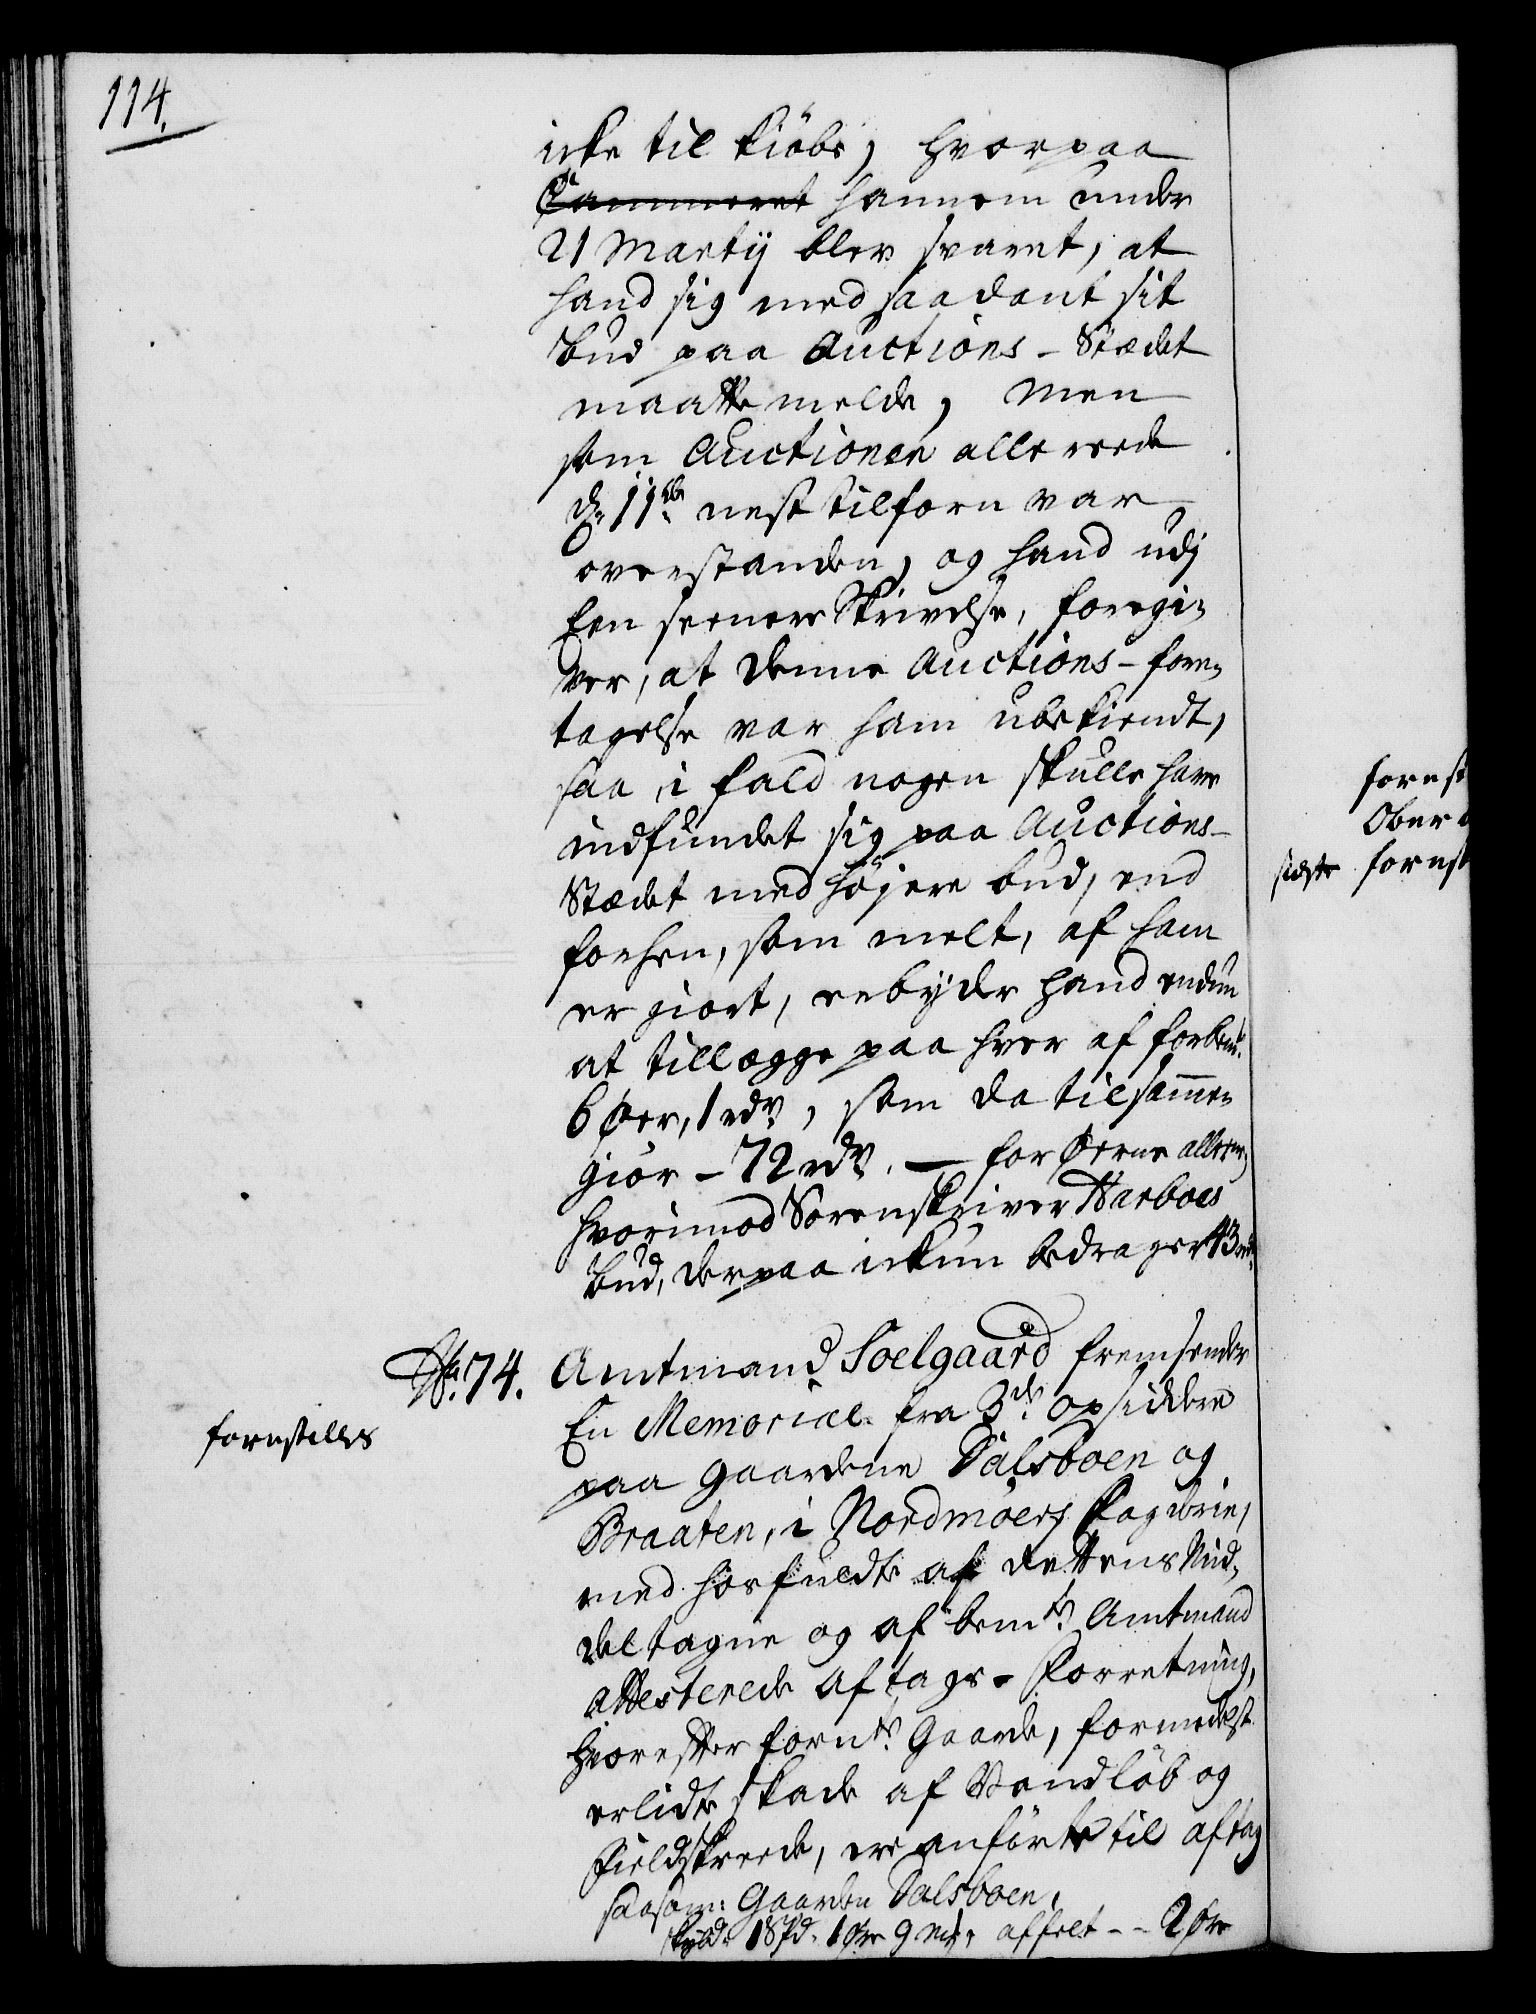 114.
icke til kiöbs, hvorpaa
Cammeret hannem under
21 Martij blev svaret, at
hand sig med saadant sit
bud paa Auctions-Stædet
maatte melde, Men
som Auctionen allerede
d. 11te nest tilforn var
overstanden, og hand udj
Een seenere Skrivelse, foregi-
ver, at denne Auctions-fore-
tagelse var ham ubekiendt,
saa i fald nogen skulle have
indfundet sig paa Auctions-
Stædet med höjere bud, end
forhen, som melt, af ham
er giort, erbyder hand endnu
at tillægge paa hver af forbem.te
6 Øer, 1 rdr, som da tilsammen
giör - 72 rdr. — for Øerne allene,
hvorimod Sorenskriver Harboes
bud, derpaa ickun bedrager 43 rdr.
No. 74. Amtmand Soelgaard fremsender
forestilles
En Memorial fra 3de opsiddere
paa gaardene Dalsboen og
Braaten, i Nordmöers fogderie,
med hosfuldte af Rettens Mid-
del tagne og af bemte Amtmand
attesterede Aftags-Forretning,
hvorefter fornte Gaarde, formedelst
erlidte skade af Vandløb og
Fieldskreede, ere anförte til aftag
saasom: Gaarden Dalsboen,
skyld 1 Spd. 1 Øre 9 mk, affelt - - 2 Øre
sidste
forest
Ober
forest